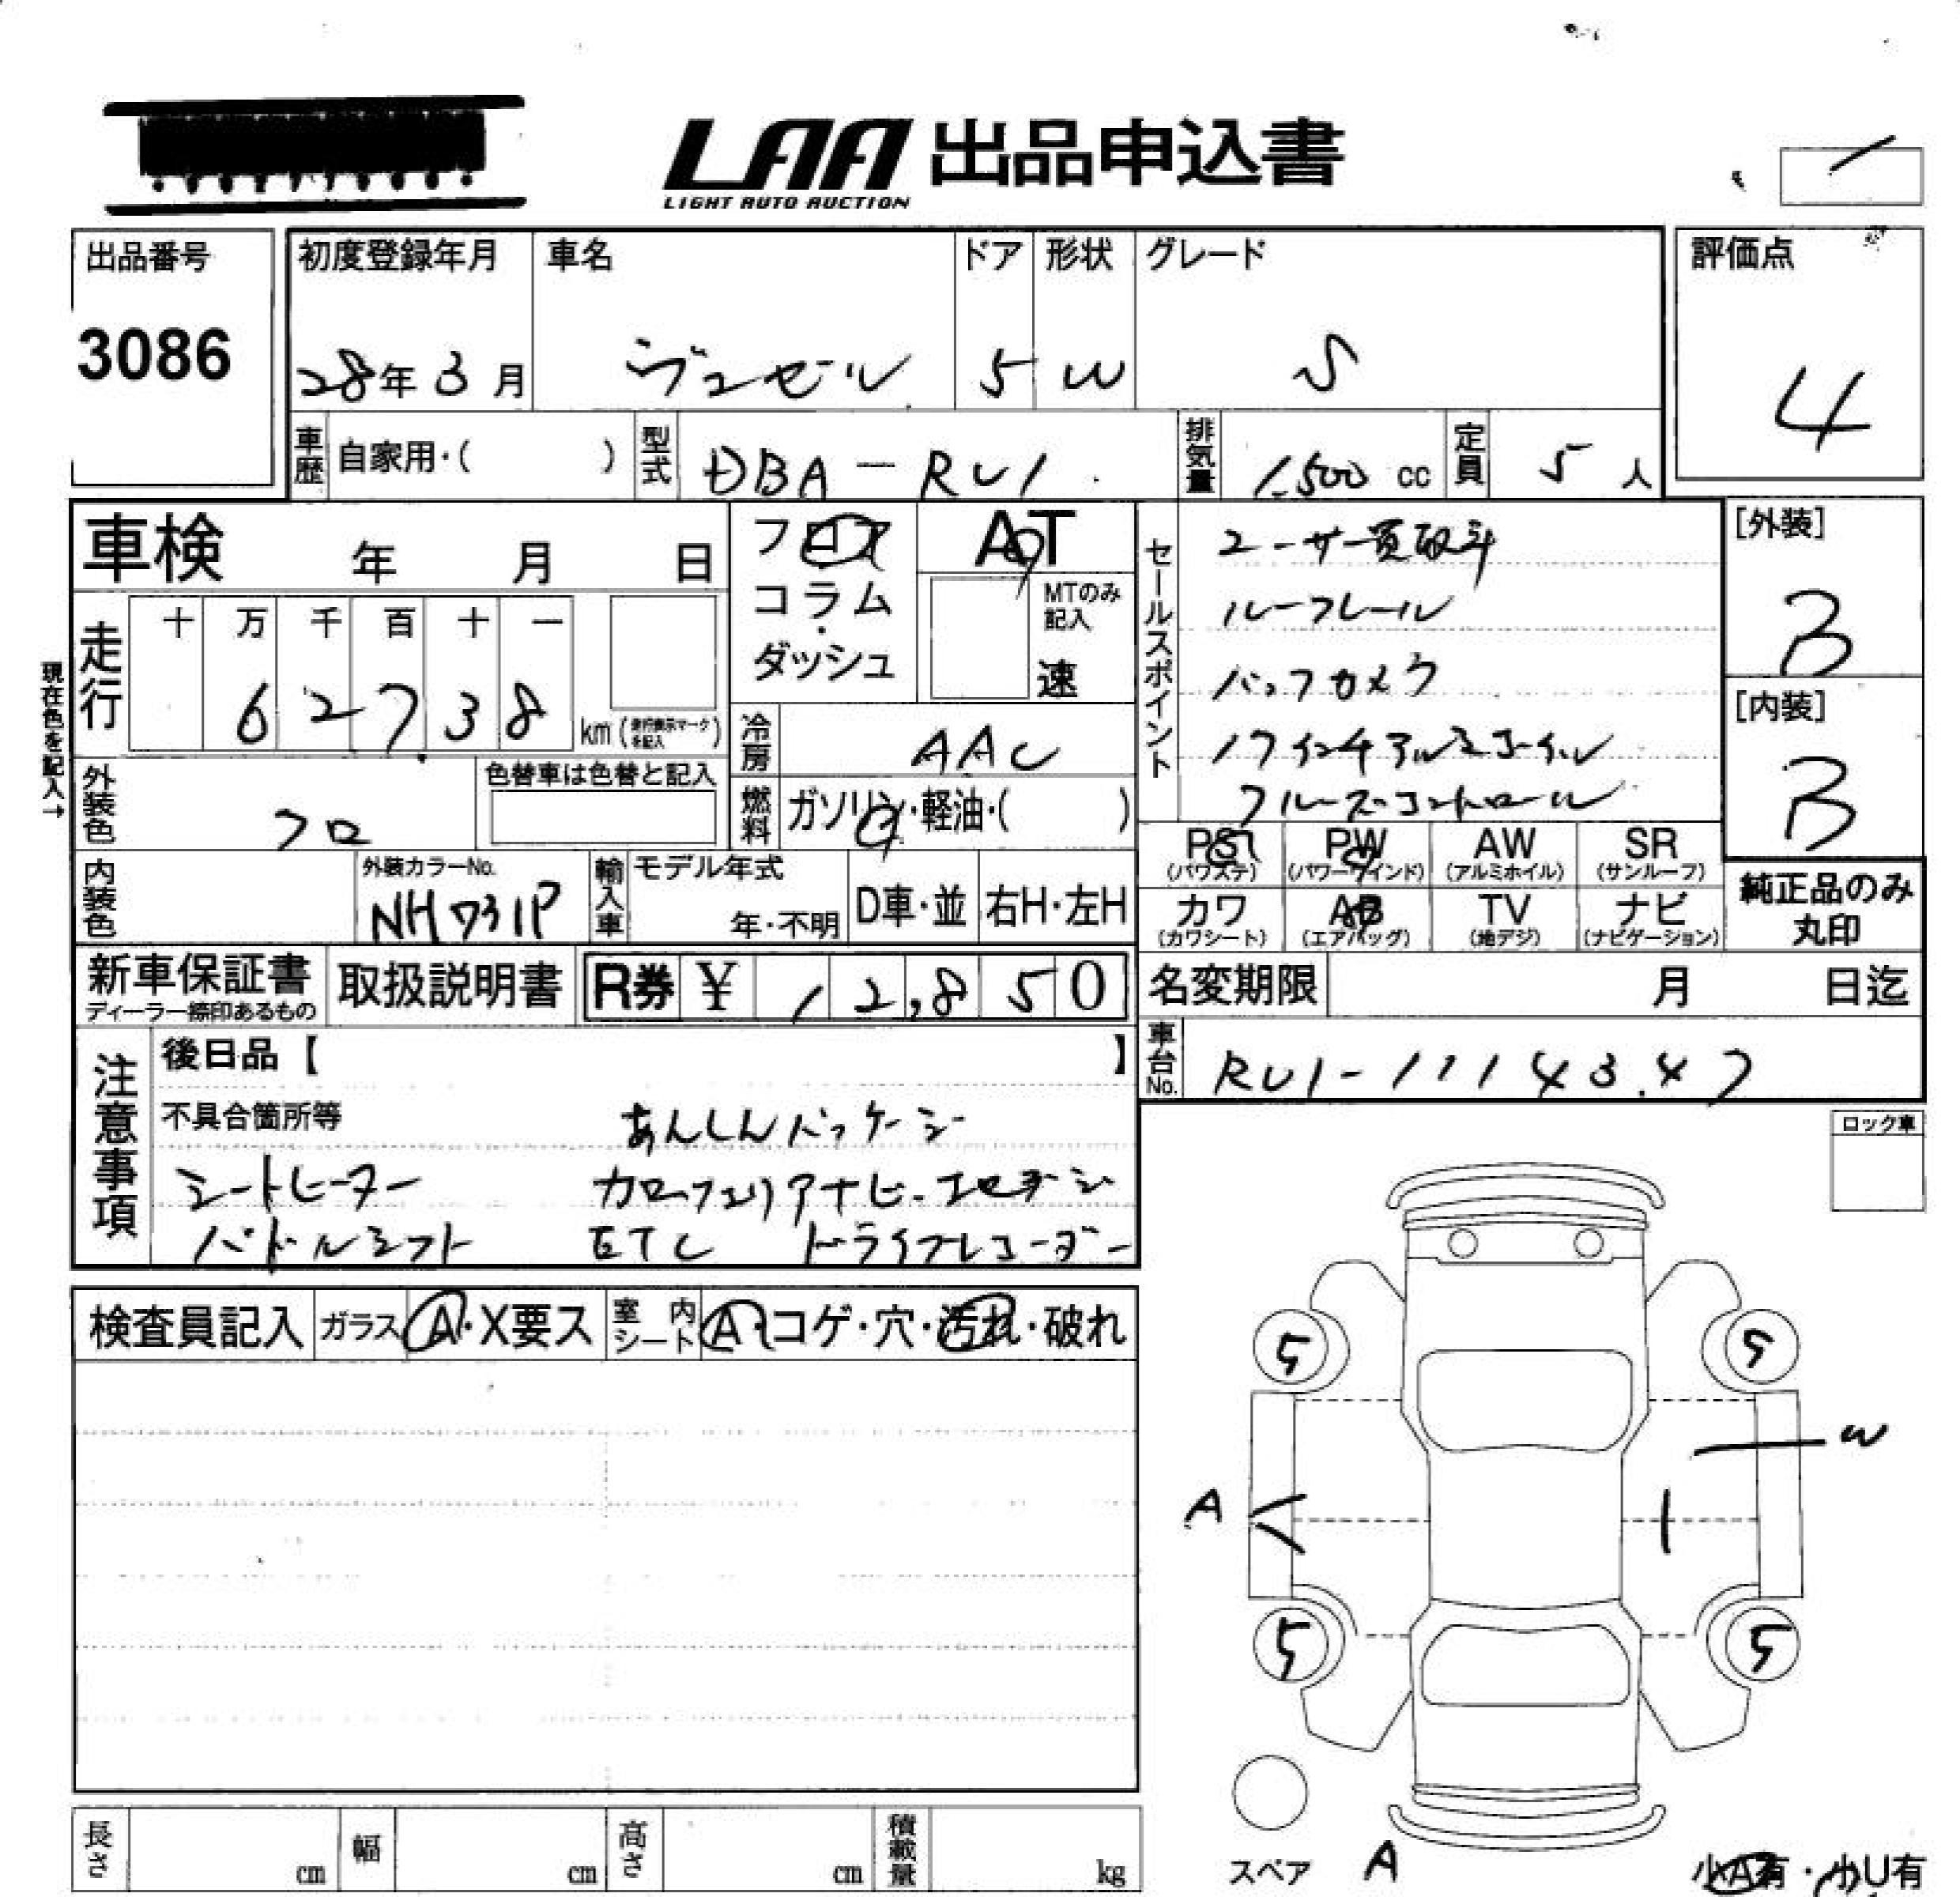 LAA 出品申込書
LIGHT AUTO AUCTION
出品番号
3086
初度登録年月
28年3月
車名
ヴェゼル
ドア
5
形状
W
グレード
S
評価点
4
車歴 自家用・( )
型式 DBA-RU1
排気量 1,500 cc
定員 5人
車検 年 月 日
フロア
コラム
ダッシュ
AT
MTのみ記入
速
現在色を記入→
走行
十 万 千 百 十 一
6 2 7 3 8 km (走行表示マークを記入)
冷房 AAC
外装色 クロ
色替車は色替と記入
燃料 ガソリン・軽油・( )
内装色
外装カラーNo.
NH731P
輸入車
モデル年式
年・不明
D車・並
右H・左H
セールスポイント
ユーザー買取車
ルーフレール
バックカメラ
17インチアルミホイール
クルーズコントロール
[外装]
B
[内装]
B
PS (パワステ)
PW (パワーウインド)
AW (アルミホイル)
SR (サンルーフ)
カワ (カワシート)
AB (エアバッグ)
TV (地デジ)
ナビ (ナビゲーション)
純正品のみ
丸印
新車保証書
ディーラー捺印あるもの
取扱説明書
R券 ¥ 12,850
名変期限 月 日迄
車台No. RU1-1114347
注意事項
後日品【 】
不具合箇所等
あんしんパッケージ
シートヒーター カロッツェリアナビ・フルセグ
パドルシフト ETC ドライブレコーダー
ロック車
検査員記入
ガラス A・X要ス
室内シート A・コゲ・穴・汚れ・破れ
5 5
W
A
5 5
スペア A
小A有・小U有
長さ cm
幅 cm
高さ cm
積載量 kg